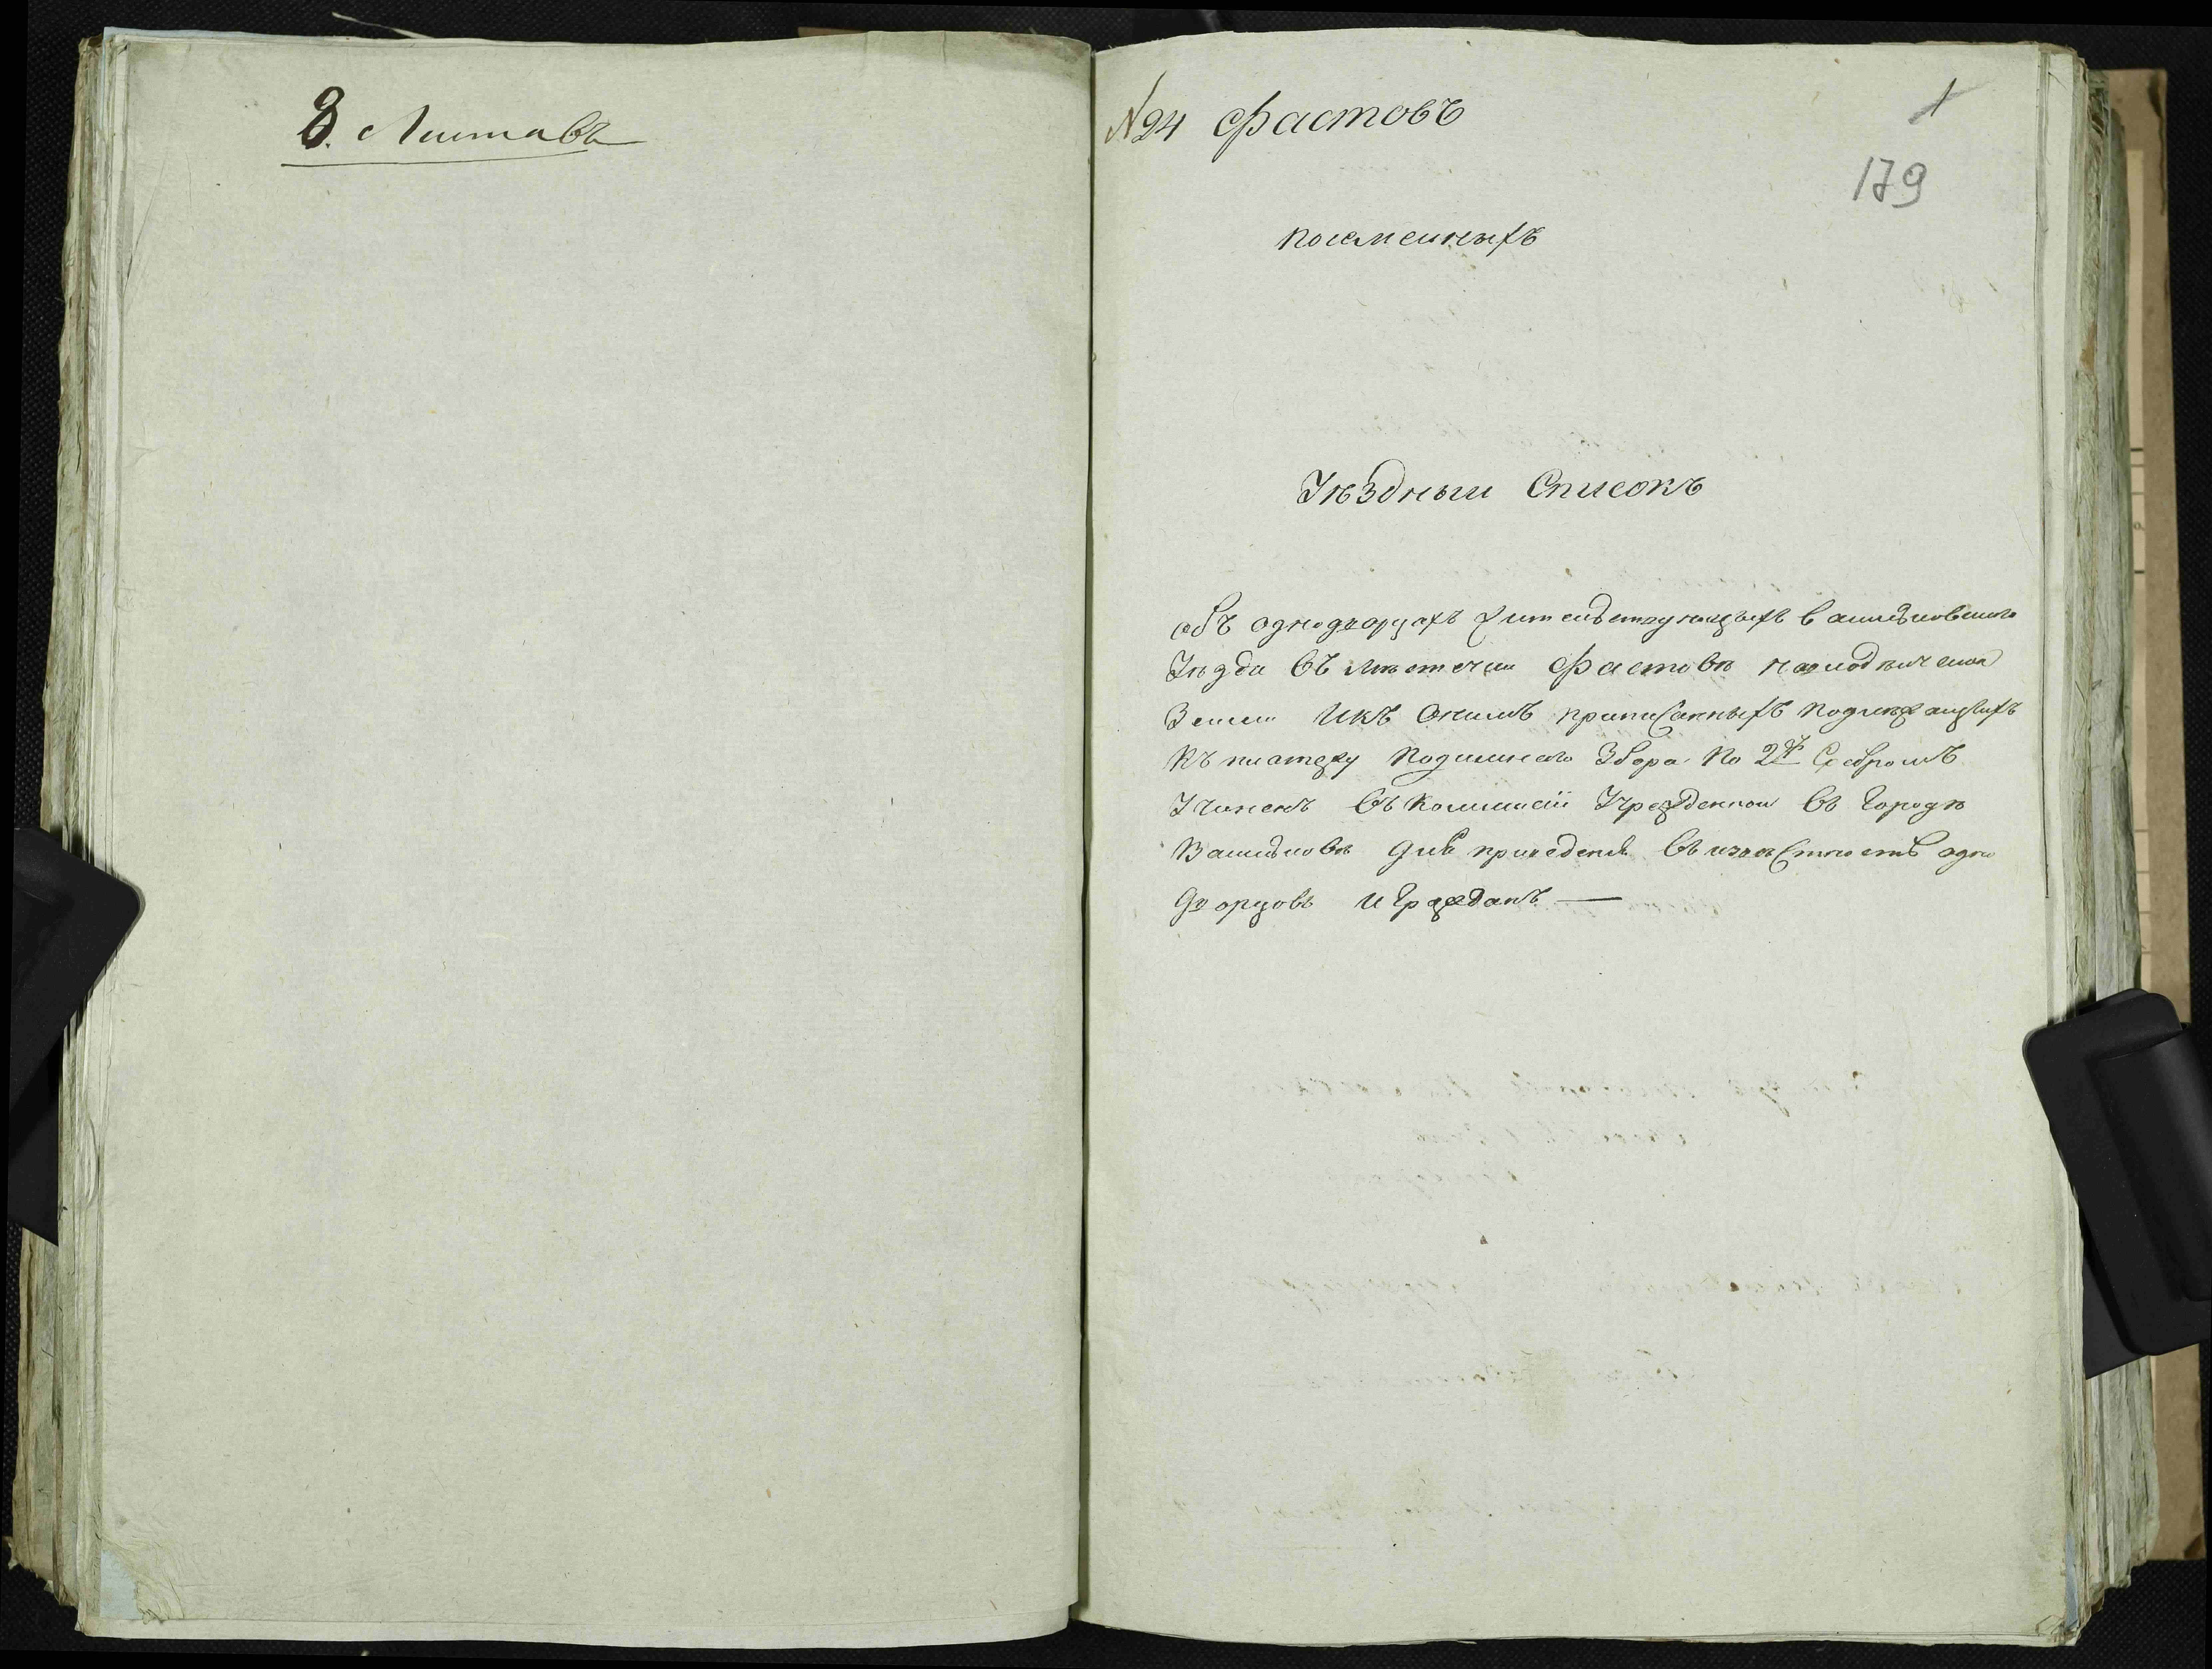 8. Листовъ
N 24 Фастовъ
1
179
поіеменныхъ
Уѣздныи Списокъ
объ однодворцахъ жительствующыхъ Васильковскаго
Уѣзда въ мѣстечки Фастовѣ
Земли Икъ Онымъ приписанныхъ подлежащихъ
Къ платежу Подымнаго Збора По 2 р Сребромъ
Учиненъ въ Коммисіи Учрежденной въ Городѣ
Васильковѣ для приведенія въ извѣстность одно
дворцовъ И Гражданъ —